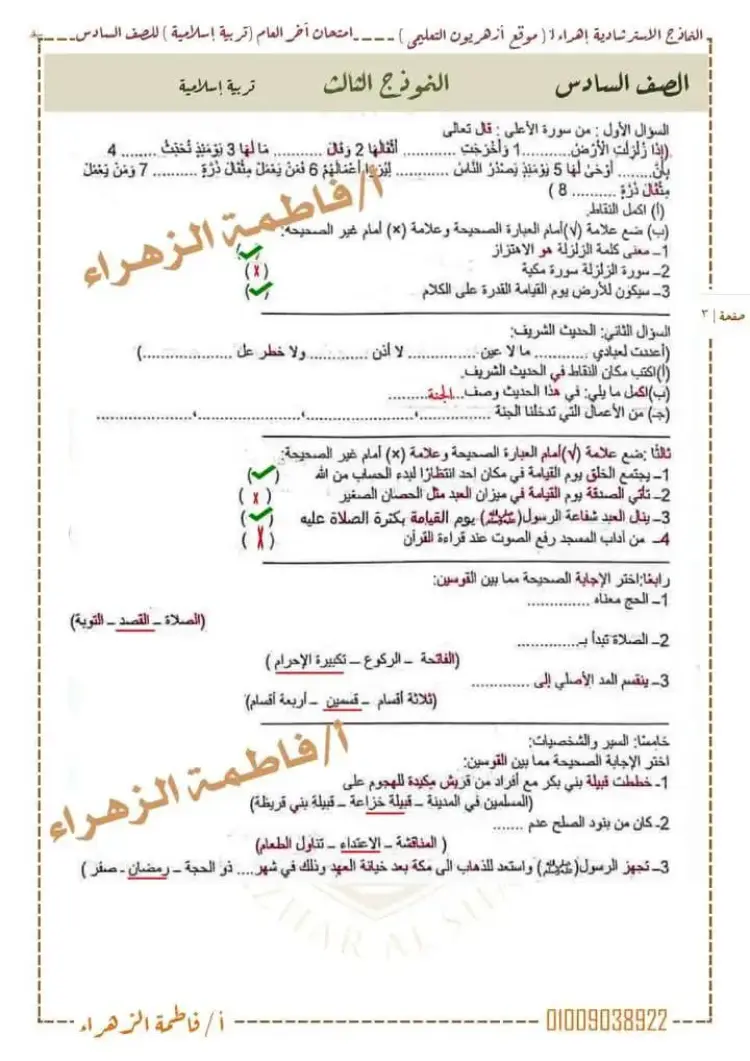 النماذج الاسترشادية إهراء أ ( موقع أزهريون التعليمى ) ----امتحان أخر العام (تربية إسلامية ) للصف السادس
الصف السادس النموذج الثالث تربية إسلامية
صفحة | ٣
السؤال الأول : من سورة الأعلى : قال تعالى
(إذا زُلْزِلَتِ الأَرْضُ...........1 وَأَخْرَجَتِ ........... أَثْقَالَهَا 2 وَقَالَ .......... مَا لَهَا 3 يَوْمَئِذٍ تُحَدِّثُ ........ 4
بِأَنَّ........ أَوْحَى لَهَا 5 يَوْمَئِذٍ يَصْدُرُ النَّاسُ ............ لِيُرَوْا أَعْمَالَهُمْ 6 فَمَنْ يَعْمَلْ مِثْقَالَ ذَرَّةٍ .......... 7 وَمَنْ يَعْمَلْ
مِثْقَالَ ذَرَّةٍ .......... 8 )
(أ) اكمل النقاط.
(ب) ضع علامة (√)أمام العبارة الصحيحة وعلامة (×) أمام غير الصحيحة:
1– معنى كلمة الزلزلة هو الاهتزاز (✓)
2– سورة الزلزلة سورة مكية (x)
3– سيكون للأرض يوم القيامة القدرة على الكلام (✓)
أ/فاطمة الزهراء
السؤال الثاني: الحديث الشريف:
(أعددت لعبادي ........... ما لا عين .............. لا أذن ............ ولا خطر عل ..................)
(أ)اكتب مكان النقاط في الحديث الشريف.
(ب)اكمل ما يلي: في هذا الحديث وصف...الجنة..........
(جـ) من الأعمال التي تدخلنا الجنة ................،..................،..................،..................
ثالثًا :ضع علامة (√)أمام العبارة الصحيحة وعلامة (×) أمام غير الصحيحة:
1– يجتمع الخلق يوم القيامة في مكان احد انتظارًا لبدء الحساب من الله (✓)
2– تأتي الصدقة يوم القيامة في ميزان العبد مثل الحصان الصغير (x)
3– ينال العبد شفاعة الرسول(ﷺ) يوم القيامة بكثرة الصلاة عليه (✓)
4– من آداب المسجد رفع الصوت عند قراءة القرآن (x)
رابعًا:اختر الإجابة الصحيحة مما بين القوسين:
1– الحج معناه ..............
(الصلاة – القصد – التوبة)
2– الصلاة تبدأ بـ..............
(الفاتحة – الركوع – تكبيرة الإحرام )
3– ينقسم المد الأصلي إلى .............
(ثلاثة أقسام – قسمين – أربعة أقسام)
خامسًا: السير والشخصيات:
اختر الإجابة الصحيحة مما بين القوسين:
1– خططت قبيلة بني بكر مع أفراد من قريش مكيدة للهجوم على
(المسلمين في المدينة – قبيلة خزاعة – قبيلة بني قريظة)
2– كان من بنود الصلح عدم .......
( المناقشة – الاعتداء – تناول الطعام)
3– تجهز الرسول(ﷺ) واستعد للذهاب الى مكة بعد خيانة العهد وذلك في شهر.... ذو الحجة – رمضان - صفر )
أ/فاطمة الزهراء
AZHAR AL SH
أ/ فاطمة الزهراء 01009038922